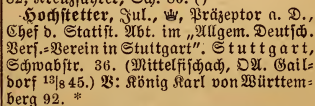 ·Hochstetter, Jul., ♛, Präzeptor a. D.,
Chef d. Statist. Abt. im „Allgem. Deutsch.
Vers.=Verein in Stuttgart". Stuttgart,
Schwabstr. 36. (Mittelfischach, OA. Gail=
dorf 13|8 45.) V: König Karl von Württem=
berg 92. *